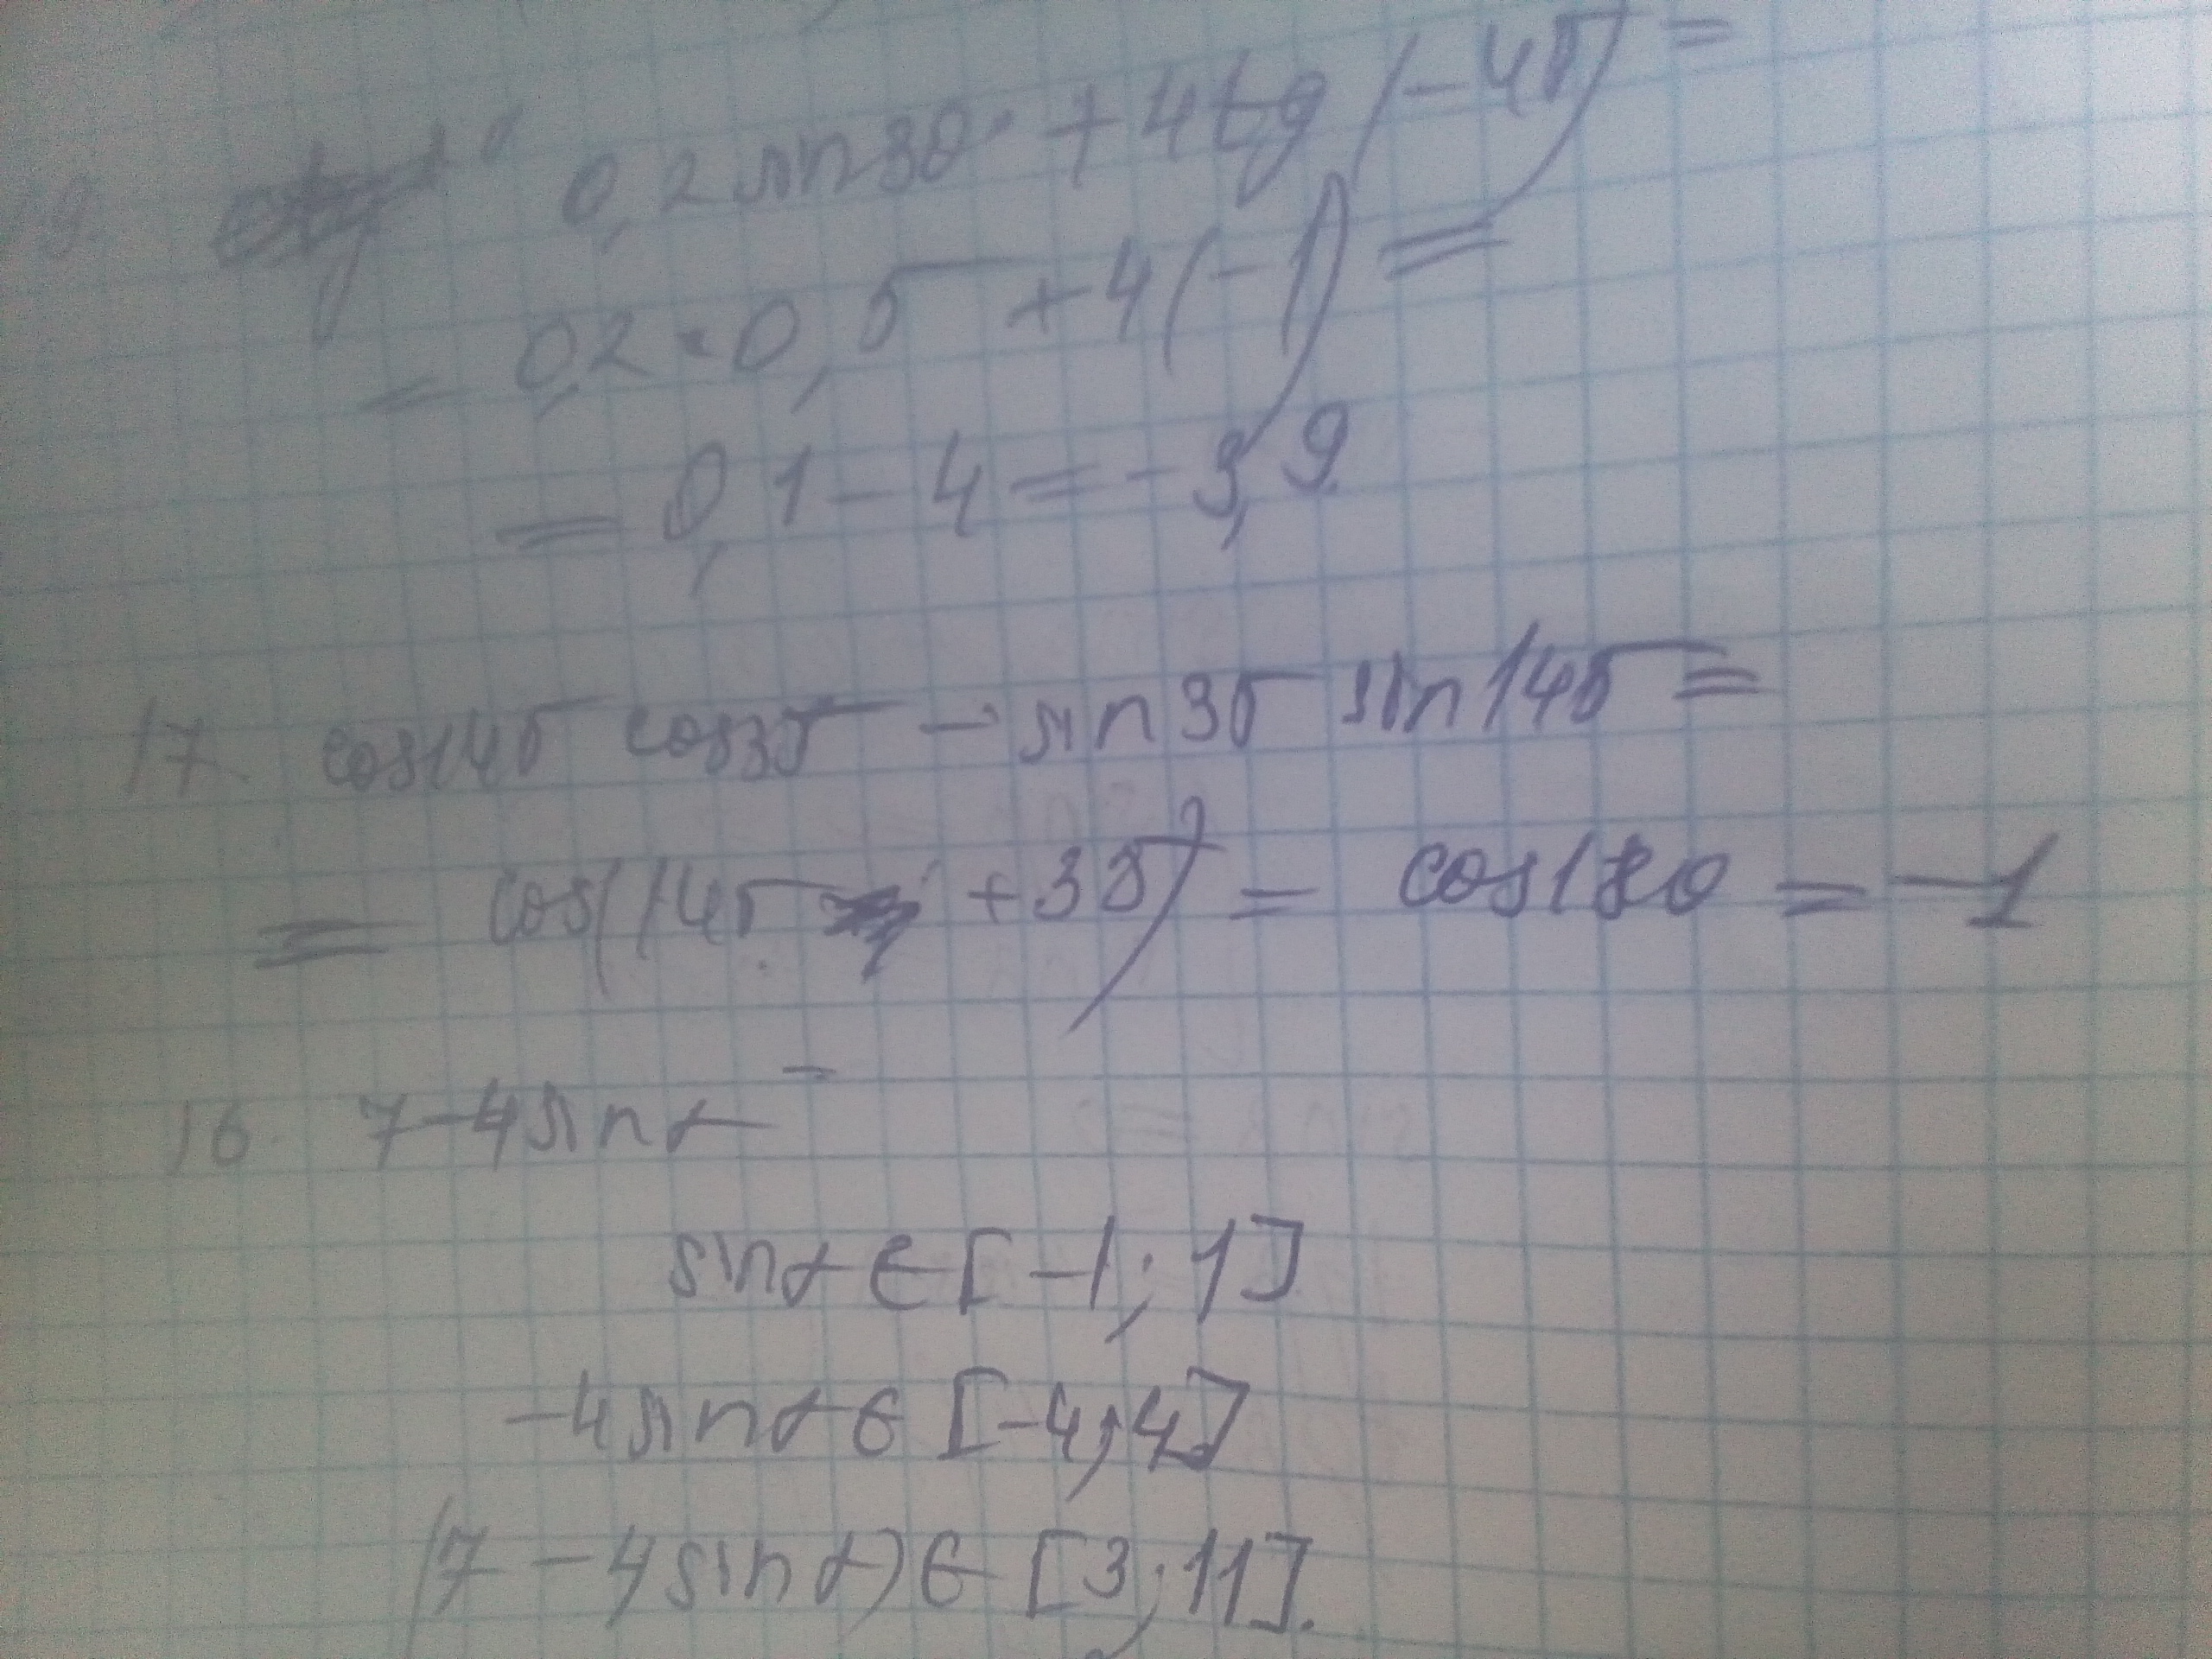 9. 0,2 sin30° + 4tg(-45) =
= 0,2 · 0,5 + 4(-1) =
= 0,1 - 4 = -3,9.
17. cos145 cos35 - sin35 sin145 =
= cos(145 + 35) = cos180 = -1
16. 7-4sinα =
sinα ∈ [-1; 1]
-4sinα ∈ [-4; 4]
(7 - 4sinα) ∈ [3; 11].